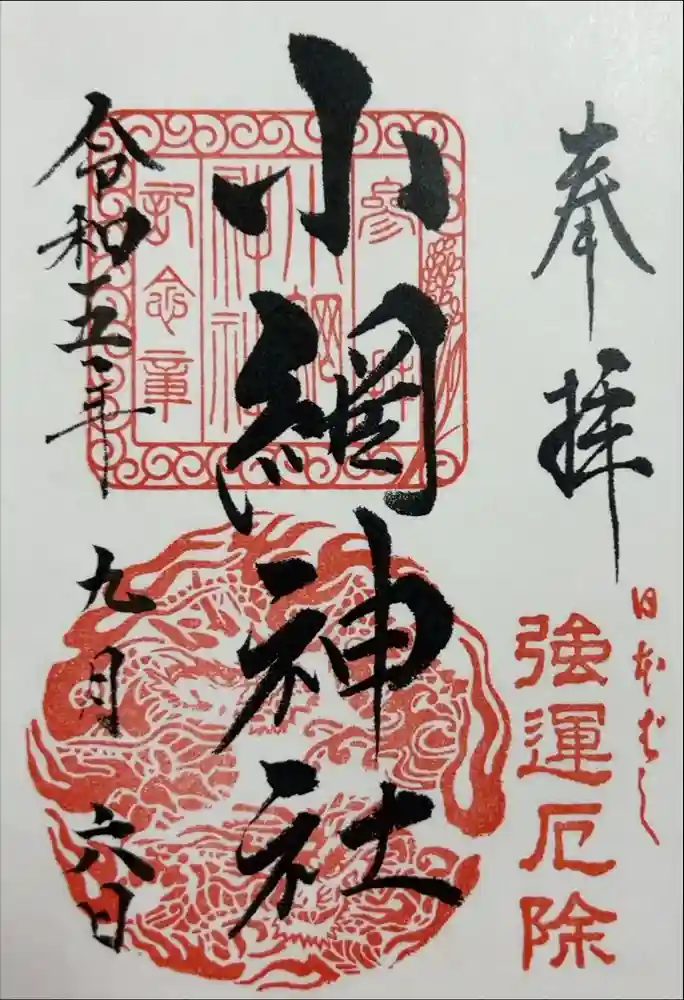 奉拝
日本ばし
強運厄除
小網神社
参拝
小網神社
記念章
令和五年九月六日